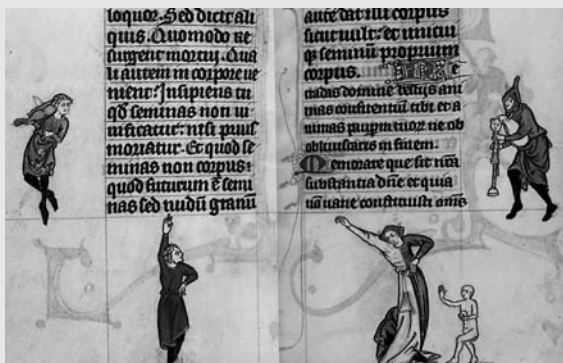 loquor. Sed dicit ali
quis. Quomodo re
surgent mortui. Qua
li autem in corpore ue
nient: Insipiens tu
qd̄ seminas non ui
uificatur: nisi prius
moriatur. Et quod se
minas non corpus:
quod futurum ē semi
nas sed nudū granū
autē dat illi corpus
sicut uult: et unicui
q; seminū proprium
corpus. Ne
tradas domine bestijs ani
mas confitentiū tibi et a
nimas paupm tuoꝝ ne ob
obliuiscaris in finem.
Memorare que sit
substantia dn̄e et quia
uane constituisti om̄s